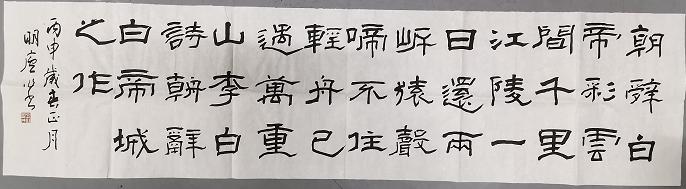 朝辭白
帝彩雲
間千里
江陵一
日還兩
岸猿聲
啼不住
輕舟已
過萬重
山李白
詩朝辭
白帝城
之作
丙申歲春正月
明